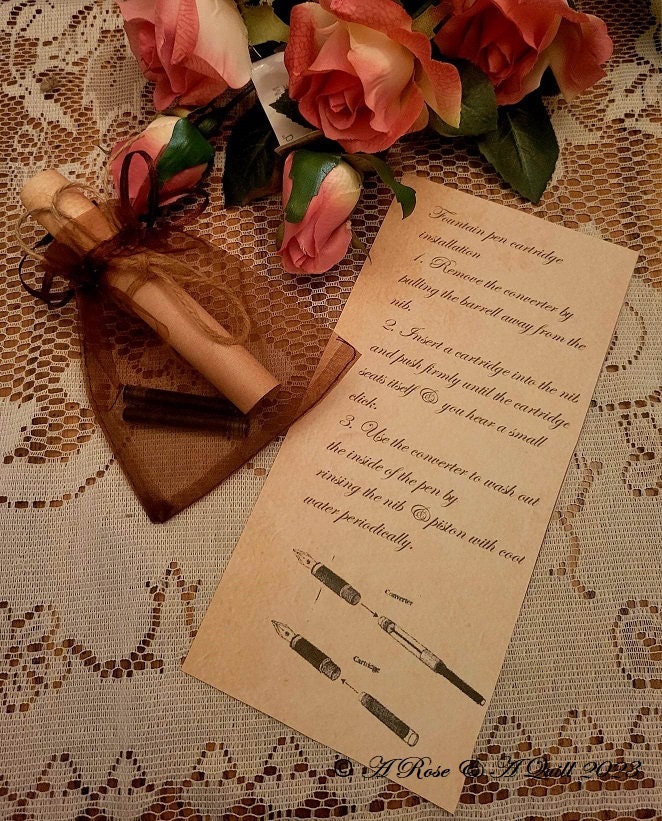 Fountain pen cartridge
installation
1. Remove the converter by
pulling the barrell away from the
nib.
2. Insert a cartridge into the nib
and push firmly until the cartridge
seats itself & you hear a small
click.
3. Use the converter to wash out
the inside of the pen by
rinsing the nib & piston with cool
water periodically.
Converter
Cartridge
© A Rose & A Quill 2023